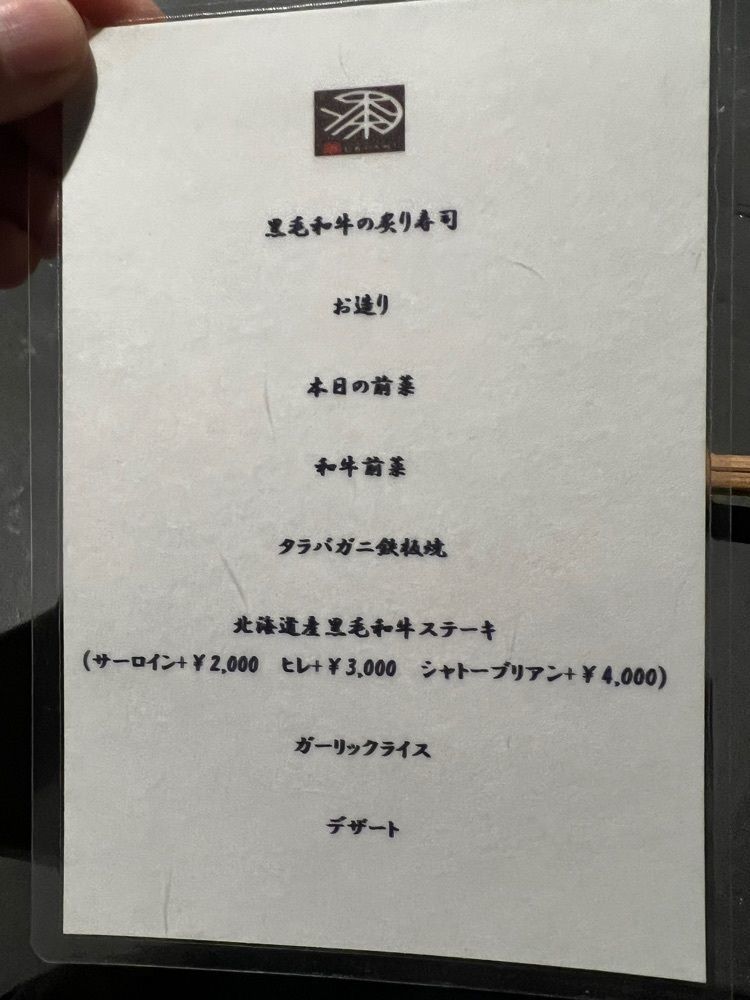 黒毛和牛の炙り寿司
お造り
本日の前菜
和牛前菜
タラバガニ鉄板焼
北海道産黒毛和牛ステーキ
(サーロイン+¥2,000 ヒレ+¥3,000 シャトーブリアン+¥4,000)
ガーリックライス
デザート